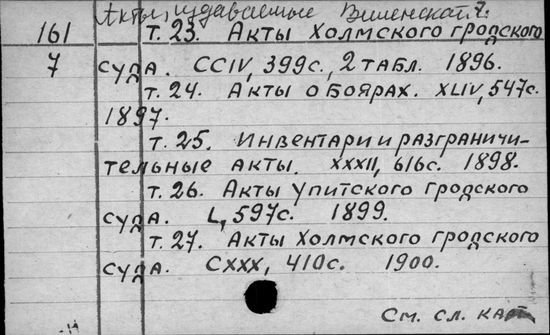 Акты, издаваемые Виленской
161 т. 23. Акты Холмского гродского
7 суда. CCIV, 399с., 2 табл. 1896.
т. 24. Акты о боярах. XLIV, 547с.
1897.
т. 25. Инвентари и разграничи-
тельные акты. XXXII, 616с. 1898.
т. 26. Акты Упитского гродского
суда. L, 597с. 1899.
т. 27. Акты Холмского гродского
суда. CXXX, 410с. 1900.
См. сл. карт